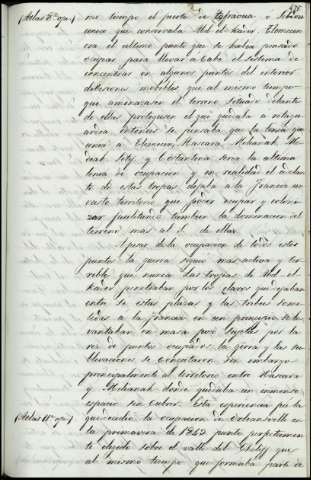 (Atlas 8º ogn.) mo tiempo el puerto de Tafraoua ó
que conservaba Abd el Kader. Tlemcen
era el ultimo punto que se habia pensado
ocupar para llevar á cabo el sistema de
concentrar en algunos puntos del interior
divisiones mobiles que al mismo tiempo
que amenazasen el terreno situado delante
de ellas protegiesen el que quedaba á retaguardia
entonces se pensaba que la linea que
une á Tlemcen, Mascara, Milianah, Medeah
Setif y Costantina seria la ultima
linea de ocupacion y en realidad el adelanto
de estas tropas dejaba á la Francia un
vasto territorio que poder ocupar y colonizar
facilitando tambien la dominacion del
terreno mas al S. de ellas.
A pesar de la ocupacion de todos estos
puntos la guerra siguió mas activa y terrible
que nunca las tropas de Abd el
Kader penetraban por los claros que dejaban
entre si estas plazas y las tribus sometidas
á la Francia en un principio se levantaban
en masa pero sujetas por la
red de puntos ocupados la guerra y las sublevaciones
se sin embargo
principalmente al territorio entre Mascara
y Milianah donde quedaba un inmenso
espacio sin cubrir. Esta esperiencia
la ocupacion de Orleansville en
(Atlas 11º ogn.) la primavera de 1843 punto perfectamente
elegido sobre el valle del Cheliff que
al mismo tiempo que formaba parte de